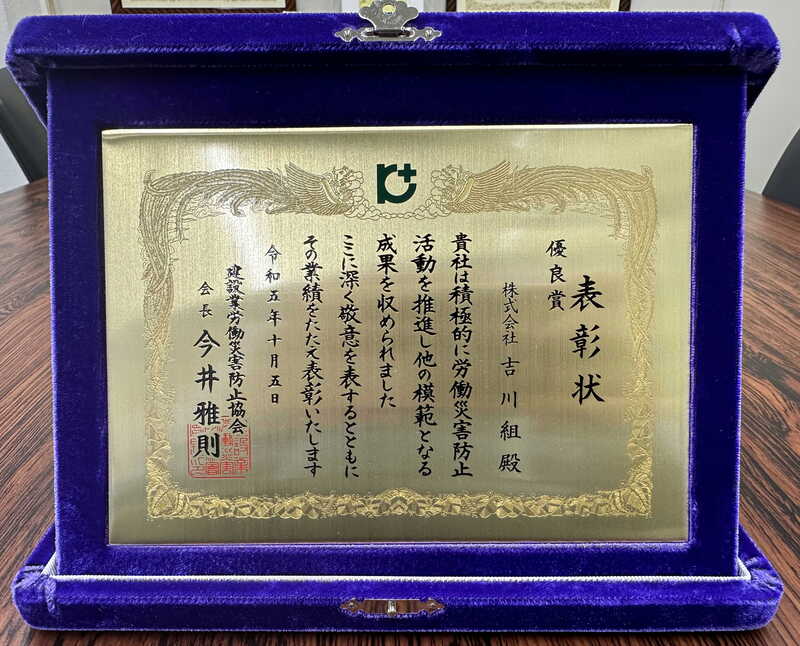 表彰状
優良賞
株式会社 吉川組殿
貴社は積極的に労働災害防止
活動を推進し他の模範となる
成果を収められました
ここに深く敬意を表するとともに
その業績をたたえ表彰いたします
令和五年十月五日
建設業労働災害防止協会
会長 今井雅則